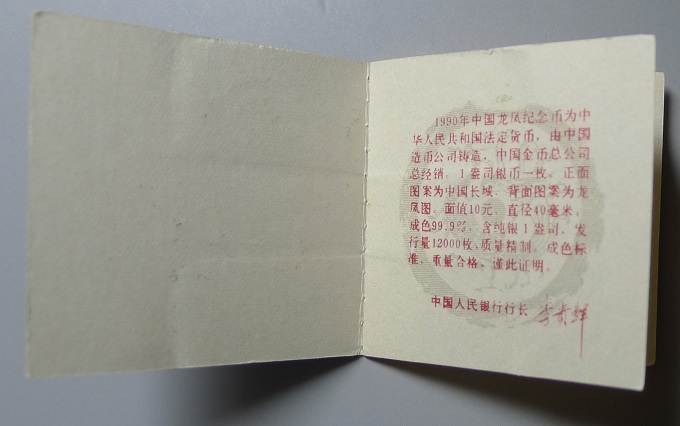 1990年中国龙凤纪念币为中
华人民共和国法定货币，由中国
造币公司铸造，中国金币总公司
总经销。1盎司银币一枚。正面
图案为中国长城，背面图案为龙
凤图。面值10元，直径40毫米，
成色99.9%，含纯银1盎司，发
行量12000枚，质量精制，成色标
准，重量合格。谨此证明。
中国人民银行行长 李贵鲜